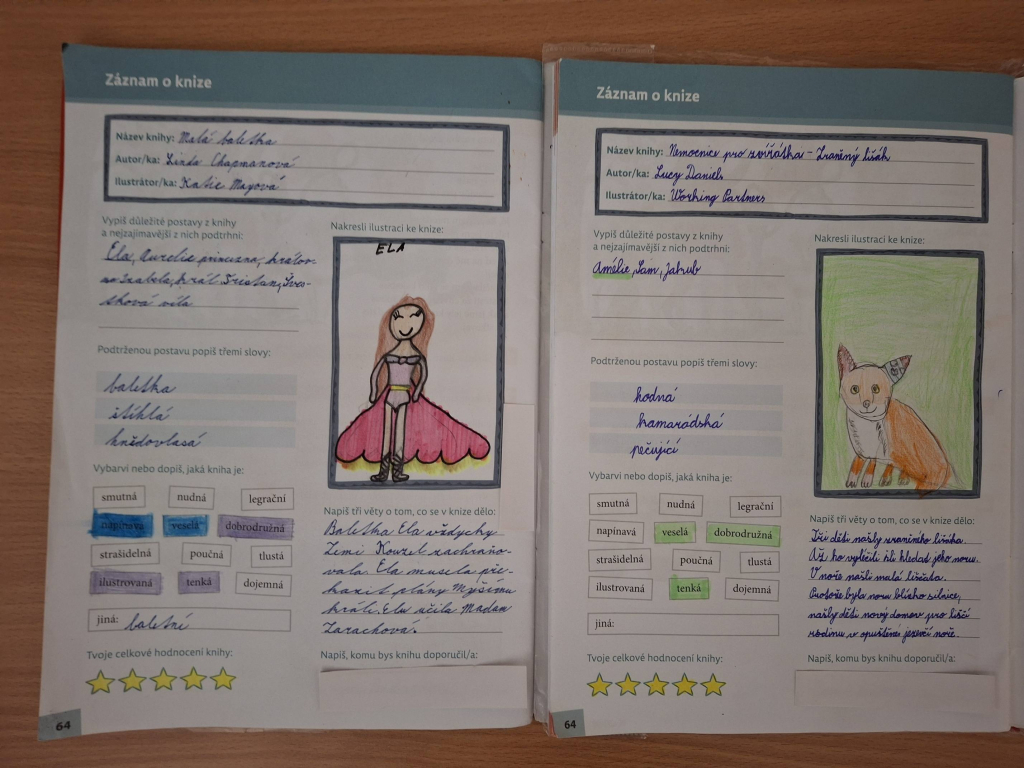 Záznam o knize
Název knihy: Malá baletka
Autor/ka: Linda Chapmanová
Ilustrátor/ka: Katie Mayová
Vypiš důležité postavy z knihy
a nejzajímavější z nich podtrhni:
Ela, Aurelie princezna, králov-
na Izabela, král Tristan, Švest-
ková víla
Nakresli ilustraci ke knize:
ELA
Podtrženou postavu popiš třemi slovy:
baletka
štíhlá
hnědovlasá
Vybarvi nebo dopiš, jaká kniha je:
smutná nudná legrační
napínavá veselá dobrodružná
strašidelná poučná tlustá
ilustrovaná tenká dojemná
jiná: baletní
Napiš tři věty o tom, co se v knize dělo:
Baletka Ela vždycky
Zemi Kouzel zachraňo-
vala. Ela musela pře-
kazit plány Myšímu
králi. Elu učila Madam
Zarachová.
Tvoje celkové hodnocení knihy:
Napiš, komu bys knihu doporučil/a:
64
Záznam o knize
Název knihy: Nemocnice pro zvířátka - Zraněný lišák
Autor/ka: Lucy Daniels
Ilustrátor/ka: Working Partners
Vypiš důležité postavy z knihy
a nejzajímavější z nich podtrhni:
Amélie, Sam, Jakub
Nakresli ilustraci ke knize:
Podtrženou postavu popiš třemi slovy:
hodná
kamarádská
pečující
Vybarvi nebo dopiš, jaká kniha je:
smutná nudná legrační
napínavá veselá dobrodružná
strašidelná poučná tlustá
ilustrovaná tenká dojemná
jiná:
Napiš tři věty o tom, co se v knize dělo:
Tři děti našly zraněného lišáka.
Až ho vyléčili šli hledat jeho noru.
V noře našli malá liščata.
Protože byla nora blízko silnice,
našly děti nový domov pro liščí
rodinu v opuštěné jezevčí noře.
Tvoje celkové hodnocení knihy:
Napiš, komu bys knihu doporučil/a:
64